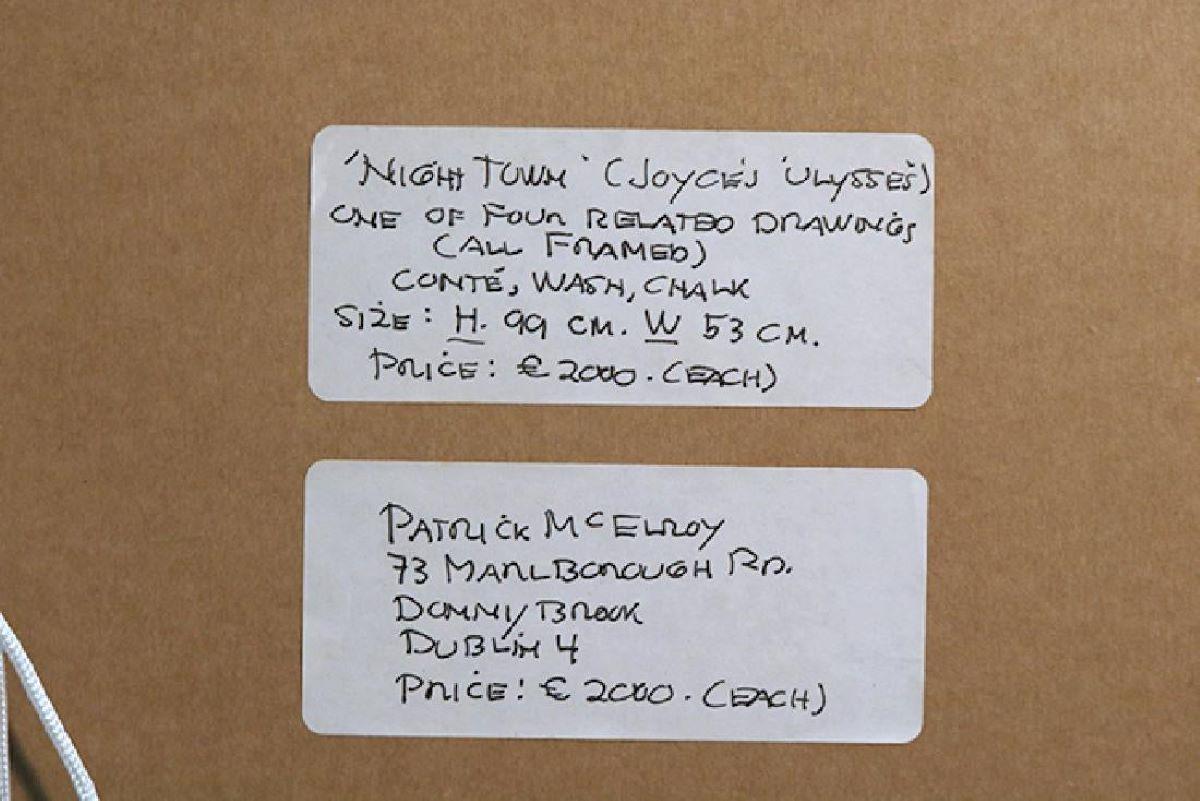 'NIGHT TOWN' (JOYCE'S 'ULYSSES')
ONE OF FOUR RELATED DRAWINGS
(ALL FRAMED)
CONTÉ, WASH, CHALK
SIZE: H. 99 CM. W 53 CM.
PRICE: € 2000. (EACH)
PATRICK McELROY
73 MARLBOROUGH RD.
DONNYBROOK
DUBLIN 4
PRICE: € 2000. (EACH)